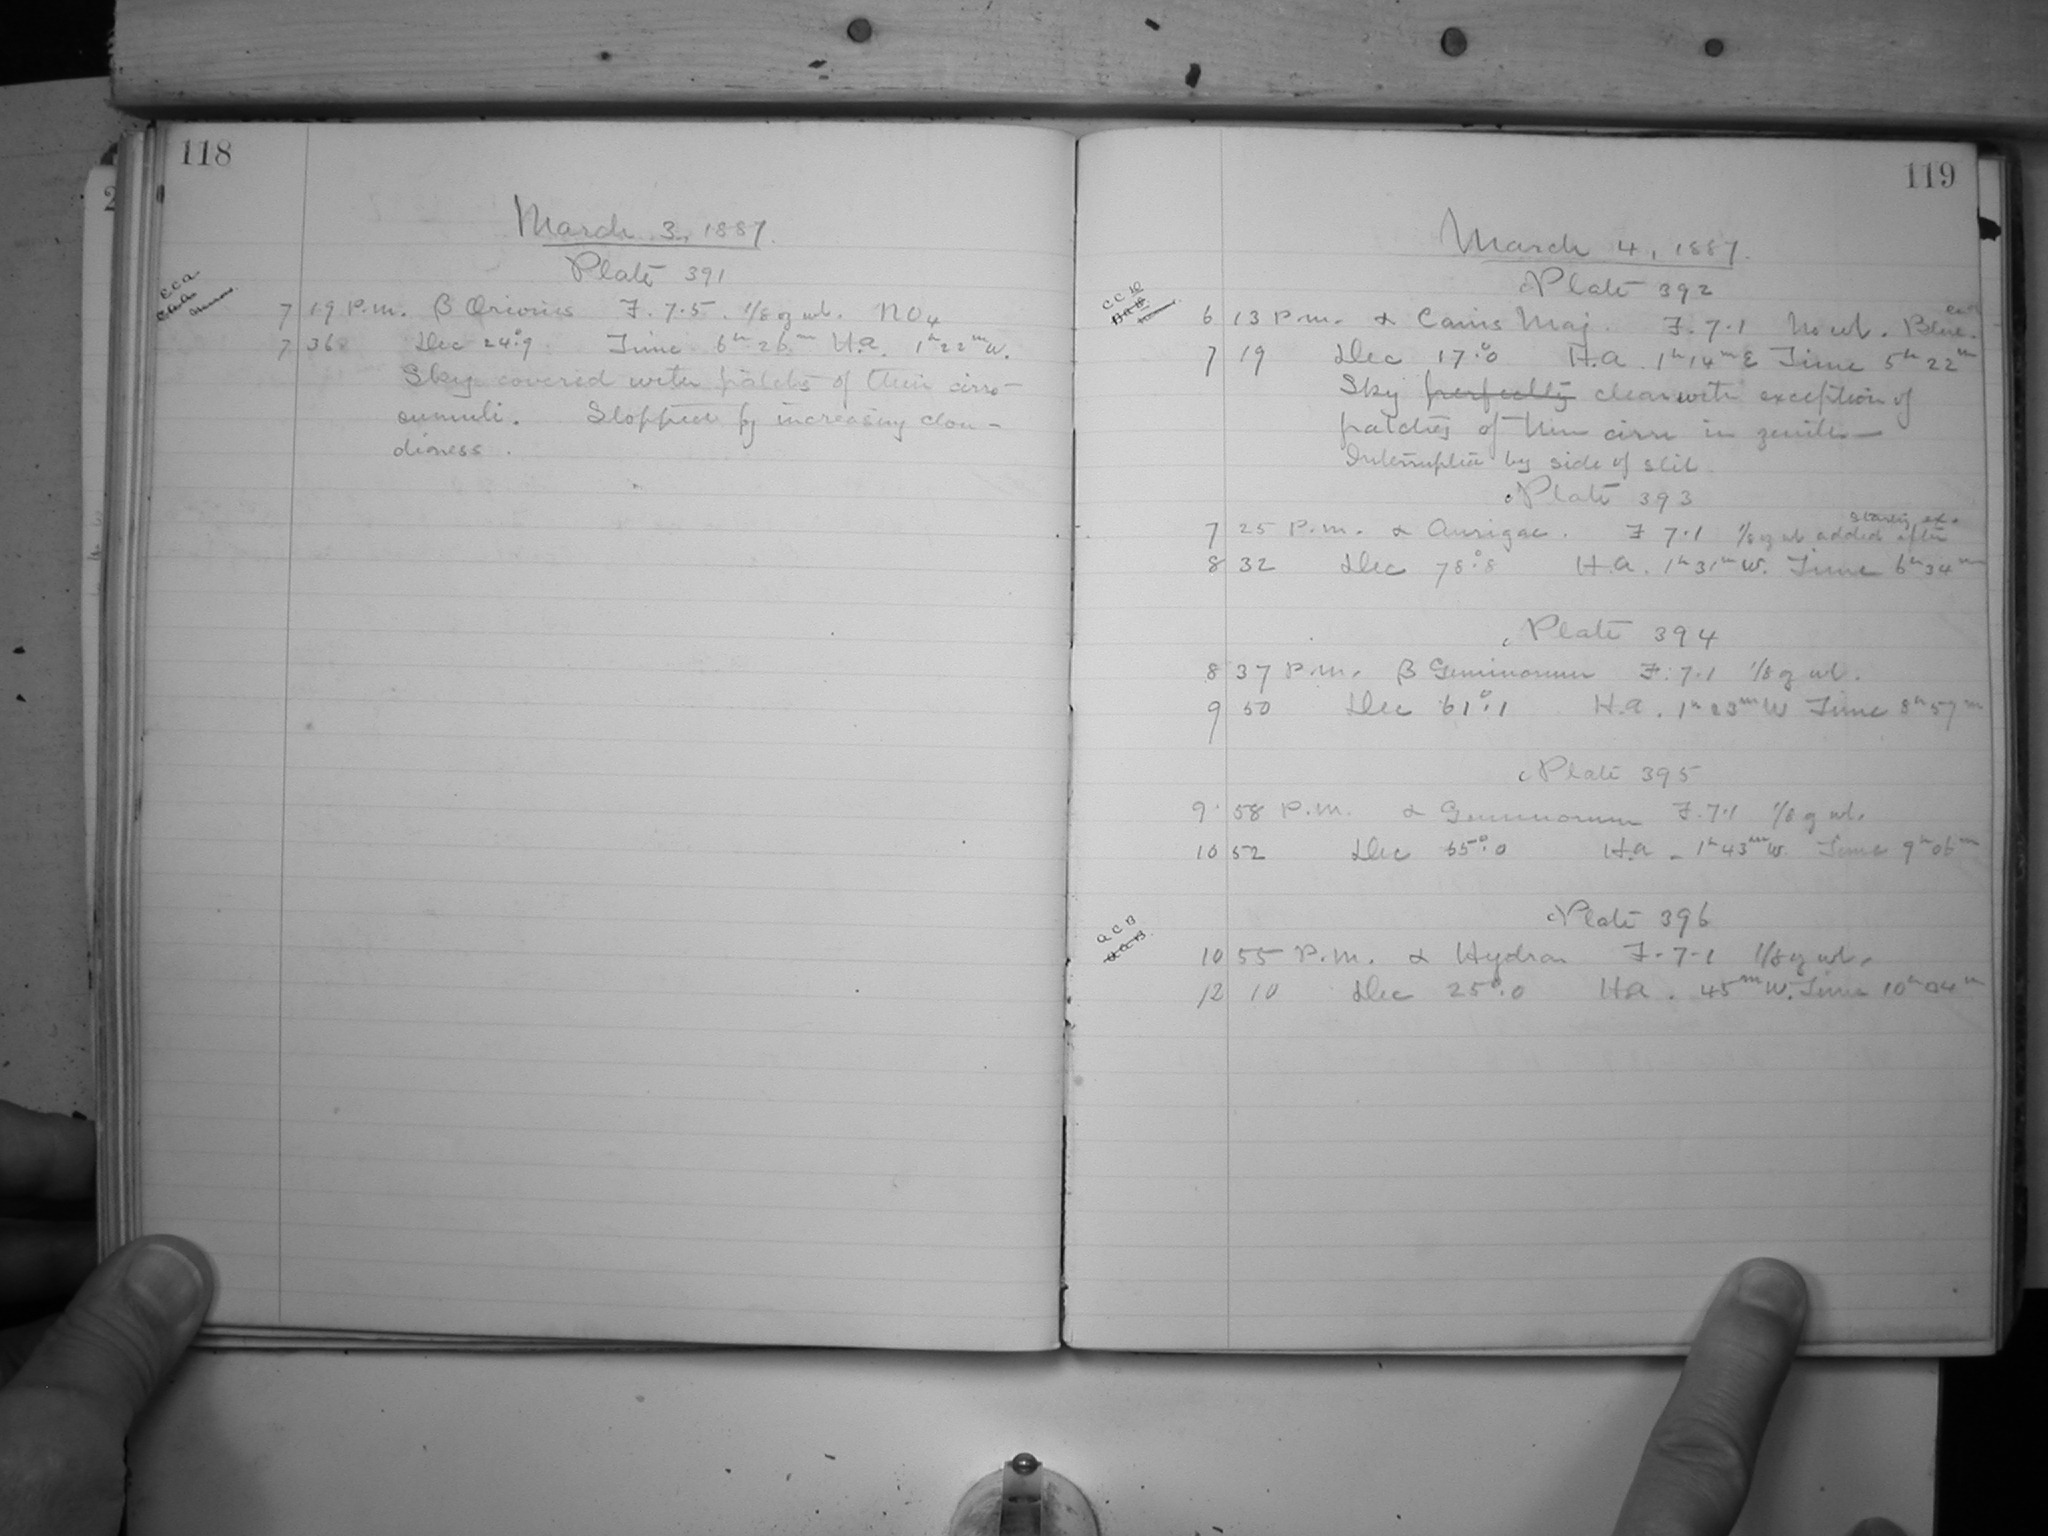 118
March 3, 1887.
Plate 391
7 19 P.m. β Orionis F. 7.5. 1/8 oz wt. No 4
7 36 Dec 24°.9 Time 6h 26m H.a. 1h 22m W.
Sky covered with patches of thin cirro-
cumuli. Stopped by increasing clou-
diness.
119
March 4, 1887.
Plate 392
6 13 P.m. α Canis Maj. F. 7.1 No wt. Blue.
7 19 Dec 17°.0 H.a. 1h 14m E Time 5h 22m
Sky perfectly clear with exception of
patches of thin cirri in zenith—
Interrupted by side of slit.
Plate 393
7 25 P.m. α Aurigae. F 7.1 1/8 oz wt added after
8 32 Dec 78°.8 H.a. 1h 31m W. Time 6h 34m
Plate 394
8 37 P.m. β Geminorum F. 7.1 1/8 oz wt.
9 50 Dec 61°.1 H.a. 1h 23m W Time 8h 57m
Plate 395
9 58 P.m. α Geminorum F. 7.1 1/8 oz wt.
10 52 Dec 65°.0 H.a. 1h 43m W. Time 9h 06m
Plate 396
10 55 P.m. α Hydrae F. 7.1 1/8 oz wt.
12 10 Dec 25°.0 H.a. 45m W. Time 10h 04m